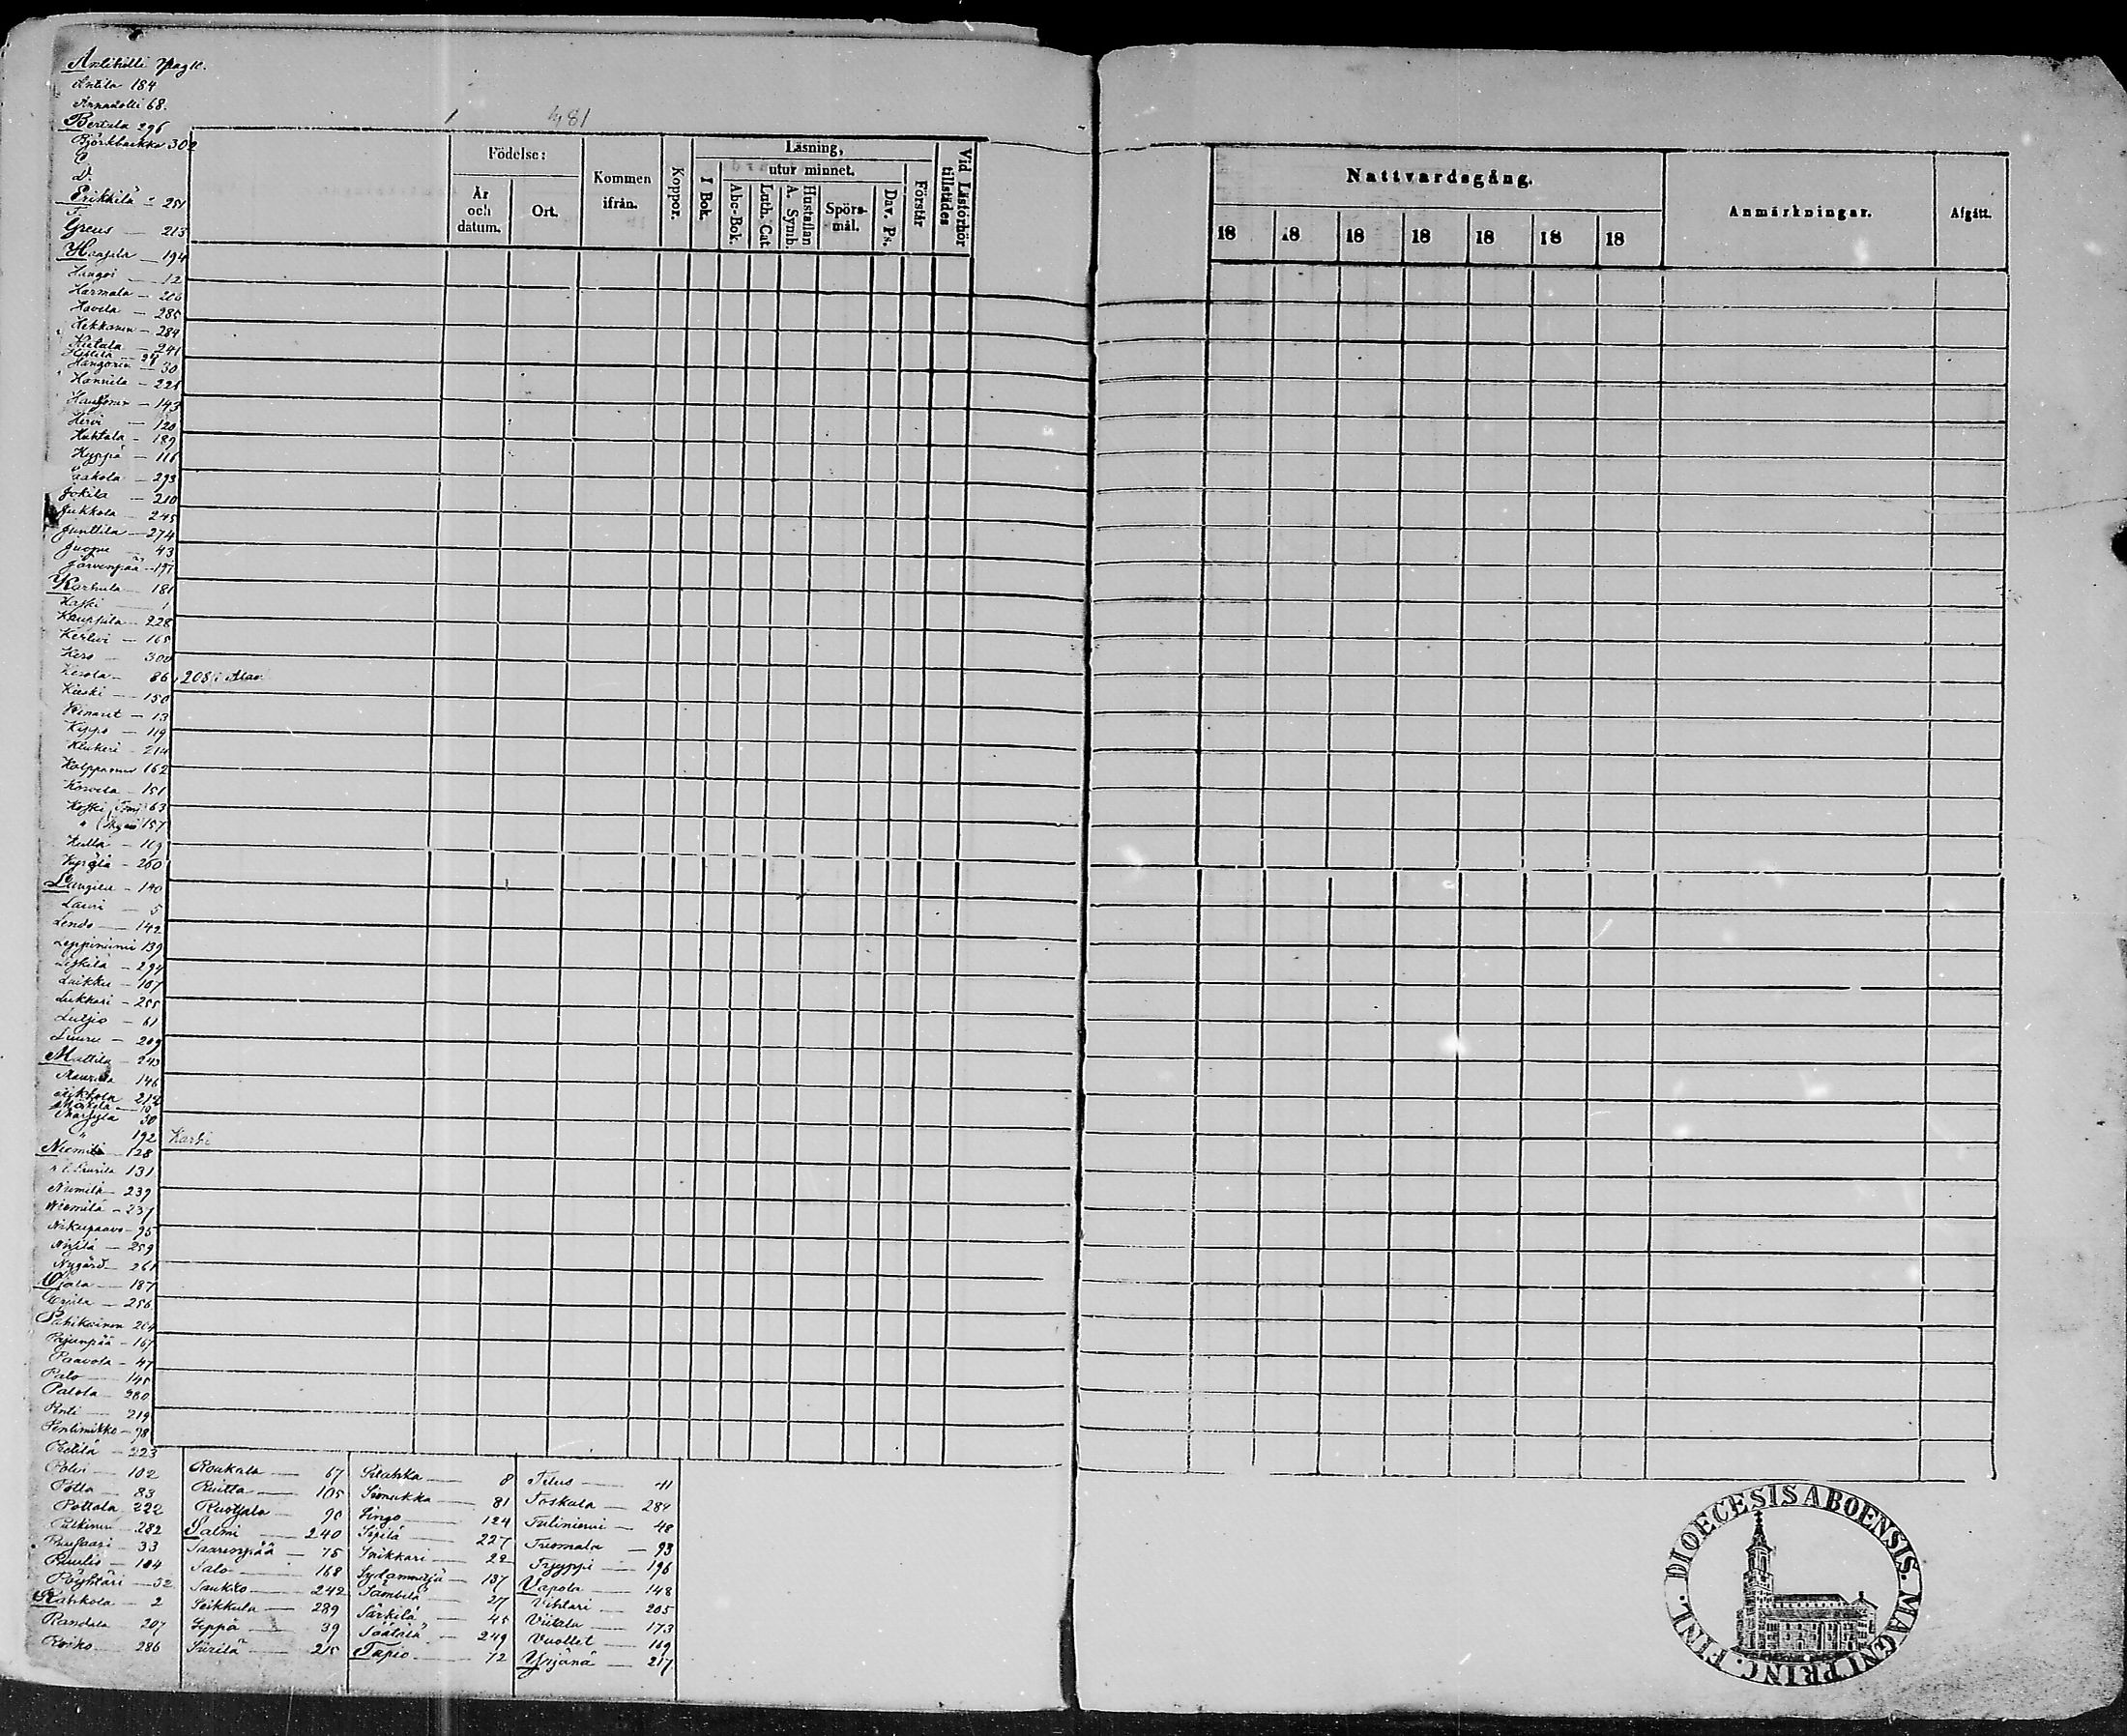 Antihilli pag 11.
Antila 184
Annatolli 68.
Bertula 296
Björkbacka 302
C.
D.
Erikkilä - 251
F.
Greus — 213
Haapala — 194
Hangoi — 12
Harmala — 206
Havela — 285
Hekkanen — 284
Hietala — 241
Hillilä — 99
Hangorin — 30
Hannila — 221
— 143
Hirvi — 120
Huhtala — 189
Hyppä — 116
Jaakola — 293
Jokila — 210
Jukkola 245
Junttila — 274
Juopu — 43
Järvenpää — 197
Karhula — 181
Kaski 1
Kauppila — 228
Kerttu — 165
Kero — 300
Kesola — 86, 208 i Alav
Kiiski — 150
Kinarit — 13
Kippo — 119
Klukeri — 214
Kolppanen 162
Korvela — 151
Koski 63
" 157
Kulla — 169
Kyrölä — 260
Langila — 140
Lauri — 5
Lendo — 142
Leppiniemi 139
Leskilä — 294
Luikku — 107
Lukkari — 255
Luljio — 61
Luuru — 209
Mattila — 243
Maunula 146
Mikkola 212
Märkilä — 10
Marjyla 50
" 192 Karhi
Niemilä — 128
131
Niemilä — 239
Niemilä — 237
Nikupaavo — 95
Nigilä — 259
Nygård — 261
Ojala — 187
Orjula — 256
Pahikainen 264
Pajunpää — 167
Paavola — 47
Palo — 145
Palola — 280
Penti — 219
Pentimikko — 98
Pietilä — 223
Polvi — 102
Pölla — 83
Pottala 222
Pulkinen — 282
Puusaari — 33
Puulio — 104
Pöyhtäri — 32
Rahkola — 2
Randala 207
Roiko — 286
Roukala — 67
Ruitta — 105
Ruotsala — 90
Salmi — 240
Saarenpää — 75
Salo — 168
Saukko — 242
Seikkula — 289
Seppä — 39
Siirilä — 215
Silahka — 8
Simukka — 81
Singo — 124
Sipilä — 227
Snikkari — 22
Sydänmetsä — 137
Sämbilä — 27
Särkilä — 45
Säätälä — 249
Tapio — 72
Titus — 41
Toskala — 284
Tuliniemi — 48
Tuomala — 93
Tryyppi — 196
Vapola — 148
Vihtari — 205
Viitala — 173
Vuollet — 169
Yrjänä — 217
1 481
Födelse:
År och datum.
Ort.
Kommen ifrån.
Koppor.
Läsning,
I Bok.
utur minnet.
Abc-Bok.
Luth. Cat
A. Symb. Hustaflan
Spörs-mål.
Dav. Ps.
Förstår
Vid Läsförhör tillstädes
Nattvardsgång.
18 18 18 18 18 18 18
Anmärkningar.
Afgått.
DIOECESIS ABOENSIS. MAGNI PRINC. FINL.